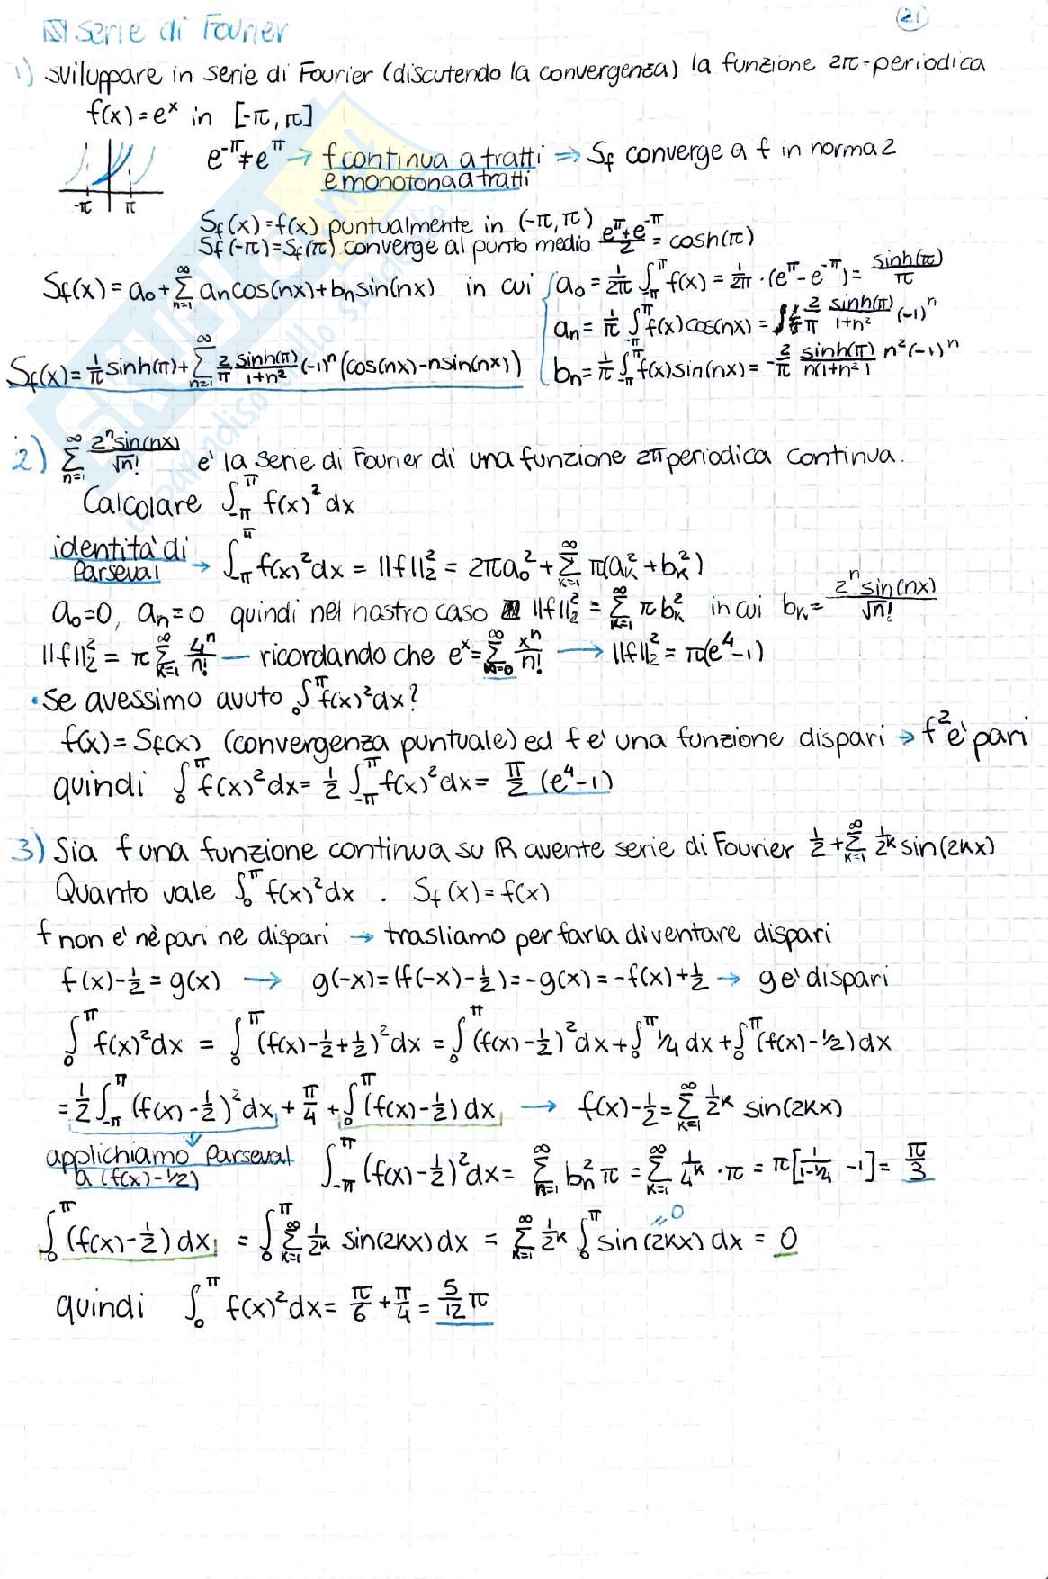 21
serie di Fourier
1) sviluppare in serie di Fourier (discutendo la convergenza) la funzione 2π-periodica
f(x)=eˣ in [-π,π]
e^-π≠e^π → f continua a tratti ⇒ Sf converge a f in norma 2
e monotona a tratti
-π π
Sf(x)=f(x) puntualmente in (-π,π)
Sf(-π)=Sf(π) converge al punto medio (e^π+e^-π)/2 = cosh(π)
Sf(x)=a₀+∑_{n=1}^∞ aₙcos(nx)+bₙsin(nx) in cui a₀=1/2π ∫_{-π}^π f(x)=1/2π·(e^π-e^-π)=sinh(π)/π
aₙ=1/π ∫_{-π}^π f(x)cos(nx)=2/π sinh(π)/(1+n²) (-1)ⁿ
Sf(x)=1/π sinh(π)+∑_{n=1}^∞ 2/π sinh(π)/(1+n²) (-1)ⁿ(cos(nx)-nsin(nx)) bₙ=1/π ∫_{-π}^π f(x)sin(nx)=-2/π sinh(π)/n(1+n²) n²(-1)ⁿ
2) ∑_{n=1}^∞ 2ⁿsin(nx)/√n! e' la serie di Fourier di una funzione 2π periodica continua.
Calcolare ∫_{-π}^π f(x)²dx
identità di
Parseval → ∫_{-π}^π f(x)²dx = ||f||₂² = 2πa₀²+∑_{k=1}^∞ π(aₖ²+bₖ²)
a₀=0, aₙ=0 quindi nel nostro caso ||f||₂²=∑_{k=1}^∞ πbₖ² in cui bₖ=2ⁿsin(nx)/√n!
||f||₂²=π∑_{k=1}^∞ 4ⁿ/n! — ricordando che eˣ=∑_{n=0}^∞ xⁿ/n! → ||f||₂²=π(e⁴-1)
• se avessimo avuto ∫_0^π f(x)²dx?
f(x)=Sf(x) (convergenza puntuale) ed f e' una funzione dispari → f² e' pari
quindi ∫_0^π f(x)²dx=1/2 ∫_{-π}^π f(x)²dx=π/2 (e⁴-1)
3) Sia f una funzione continua su ℝ avente serie di Fourier 1/2+∑_{k=1}^∞ 1/2ᵏ sin(2kx)
Quanto vale ∫_0^π f(x)²dx . Sf(x)=f(x)
f non e' nè pari ne dispari → trasliamo per farla diventare dispari
f(x)-1/2=g(x) → g(-x)=(f(-x)-1/2)=-g(x)=-f(x)+1/2 → g e' dispari
∫_0^π f(x)²dx = ∫_0^π (f(x)-1/2+1/2)²dx = ∫_0^π (f(x)-1/2)²dx+∫_0^π 1/4 dx+∫_0^π (f(x)-1/2)dx
=1/2 ∫_{-π}^π (f(x)-1/2)²dx+π/4+∫_0^π (f(x)-1/2)dx → f(x)-1/2=∑_{k=1}^∞ 1/2ᵏ sin(2kx)
applichiamo Parseval
a (f(x)-1/2) ∫_{-π}^π (f(x)-1/2)²dx=∑_{n=1}^∞ bₙ²π=∑_{k=1}^∞ 1/4ᵏ·π=π[1/(1-1/4) -1]=π/3
∫_0^π (f(x)-1/2)dx = ∫_0^π ∑_{k=1}^∞ 1/2ᵏ sin(2kx)dx = ∑_{k=1}^∞ 1/2ᵏ ∫_0^π sin(2kx)dx = 0
=0
quindi ∫_0^π f(x)²dx=π/6+π/4=5/12 π